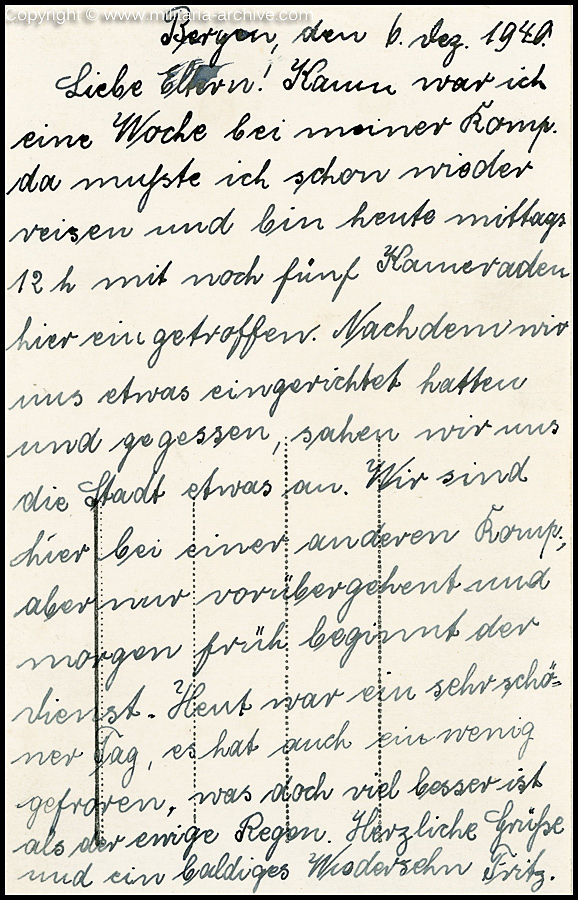 Copyright © www.militaria-archive.com
Bergen, den 6. Dez. 1940.
Liebe Eltern! Kaum war ich
eine Woche bei meiner Komp.
da mußte ich schon wieder
reisen und bin heute mittags
12 h mit noch fünf Kameraden
hier eingetroffen. Nachdem wir
uns etwas eingerichtet hatten
und gegessen, sahen wir uns
die Stadt etwas an. Wir sind
hier bei einer anderen Komp.,
aber nur vorübergehent und
morgen früh beginnt der
Dienst. Heut war ein sehr schö=
ner Tag, es hat auch ein wenig
gefroren, was doch viel besser ist
als der ewige Regen. Herzliche Grüße
und ein baldiges Wiedersehn Fritz.